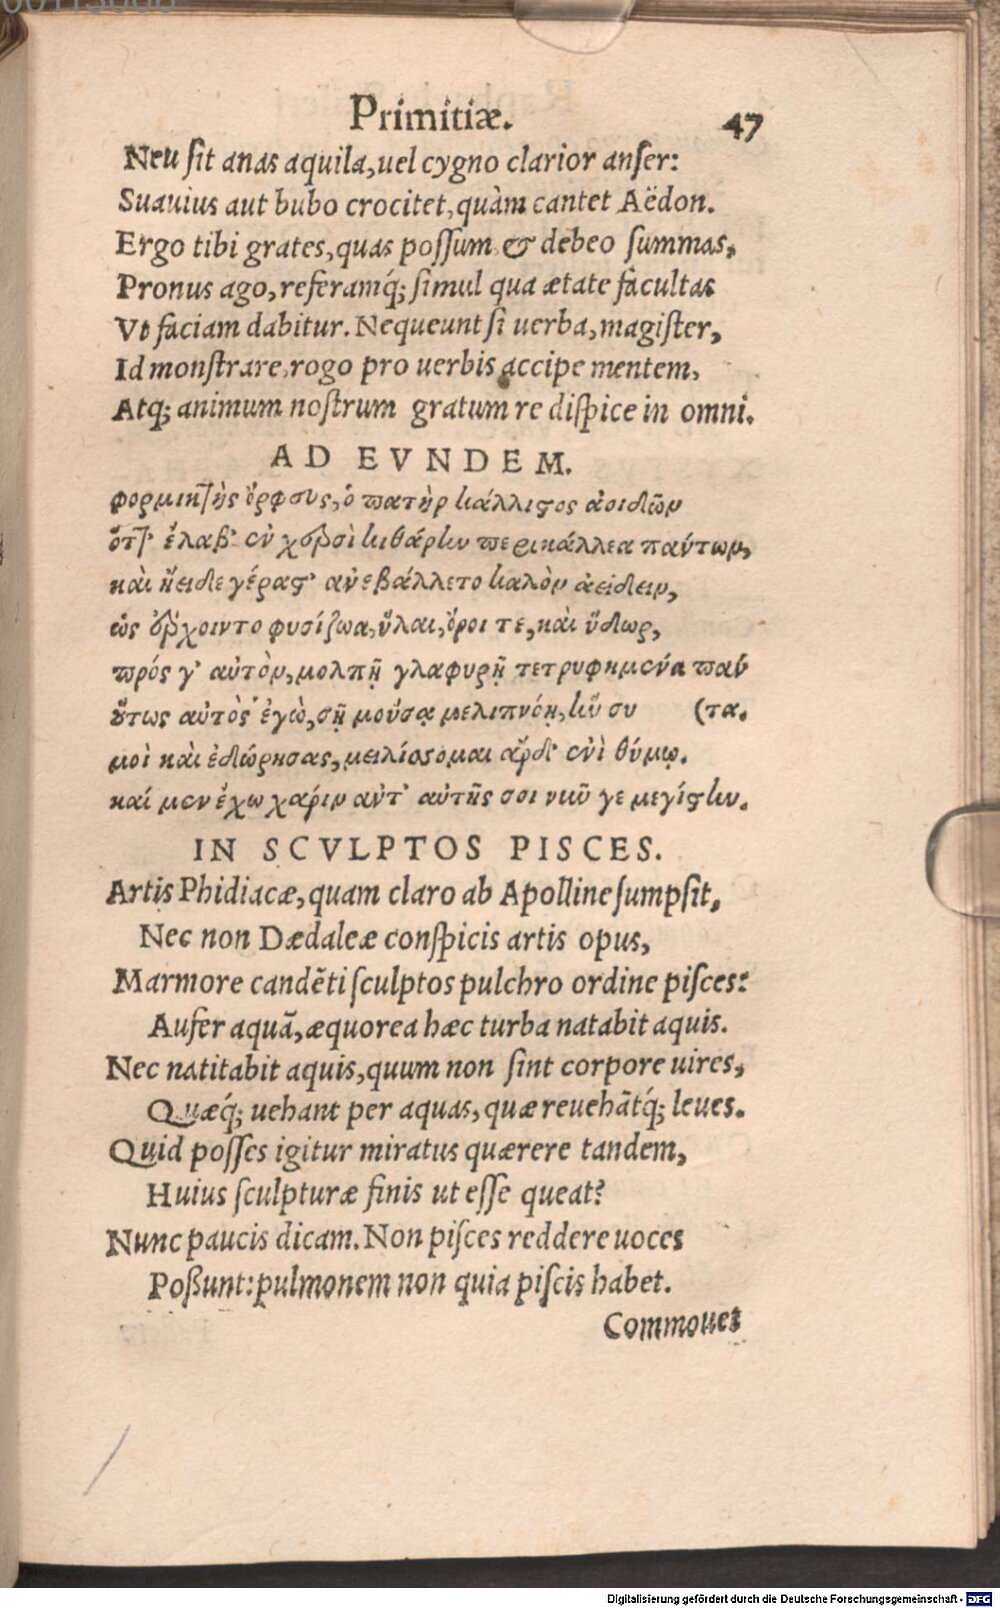 Primitiæ. 47
Neu ſit anas aquila, uel cygno clarior anſer:
Suauius aut bubo crocitet, quàm cantet Aëdon.
Ergo tibi grates, quas poſſum & debeo ſummas,
Pronus ago, referamq́; ſimul qua ætate facultas
Vt faciam dabitur. Nequeunt ſi uerba, magiſter,
Id monſtrare, rogo pro uerbis accipe mentem,
Atq; animum noſtrum gratum re diſpice in omni.
AD EVNDEM.
φορμικτὴς ὀρφεὺς, ὁ πατὴρ κάλλιςος ἀοιδῶν
ὅτ' ἔλαβ' ἐν χερσὶ κιθάρην περικάλλεα πάντων,
καὶ ἤειδε γέρας' ἀνεβάλλετο καλὸν ἀείδειν,
ὡς ὀρχοιντο φυσίζωα, ὕλαι, ὄροι τε, καὶ ὕδωρ,
πρός γ' αὐτὸν, μολπῇ γλαφυρῇ τετρυφημένα πάν
οὕτως αὐτὸς ἐγὼ, σῇ μούσᾳ μελιπνόῃ, ἣν συ (τα.
μοὶ καὶ ἐδώρησας, μειλίσσομαι ἐνὶ θύμῳ.
καί μεν ἔχω χάριν αὐτ' αὐτῆς σοι νῦν γε μεγίςην.
IN SCVLPTOS PISCES.
Artis Phidiacæ, quam claro ab Apolline ſumpſit,
Nec non Dædaleæ conſpicis artis opus,
Marmore candẽti ſculptos pulchro ordine piſces:
Aufer aquã, æquorea hæc turba natabit aquis.
Nec natitabit aquis, quum non ſint corpore uires,
Quæq́; uehant per aquas, quæ reuehãtq́; leues.
Quid poſſes igitur miratus quærere tandem,
Huius ſculpturæ finis ut eſſe queat?
Nunc paucis dicam. Non piſces reddere uoces
Poßunt: pulmonem non quia piſcis habet.
Commouet
Digitalisierung gefördert durch die Deutsche Forschungsgemeinschaft - DFG